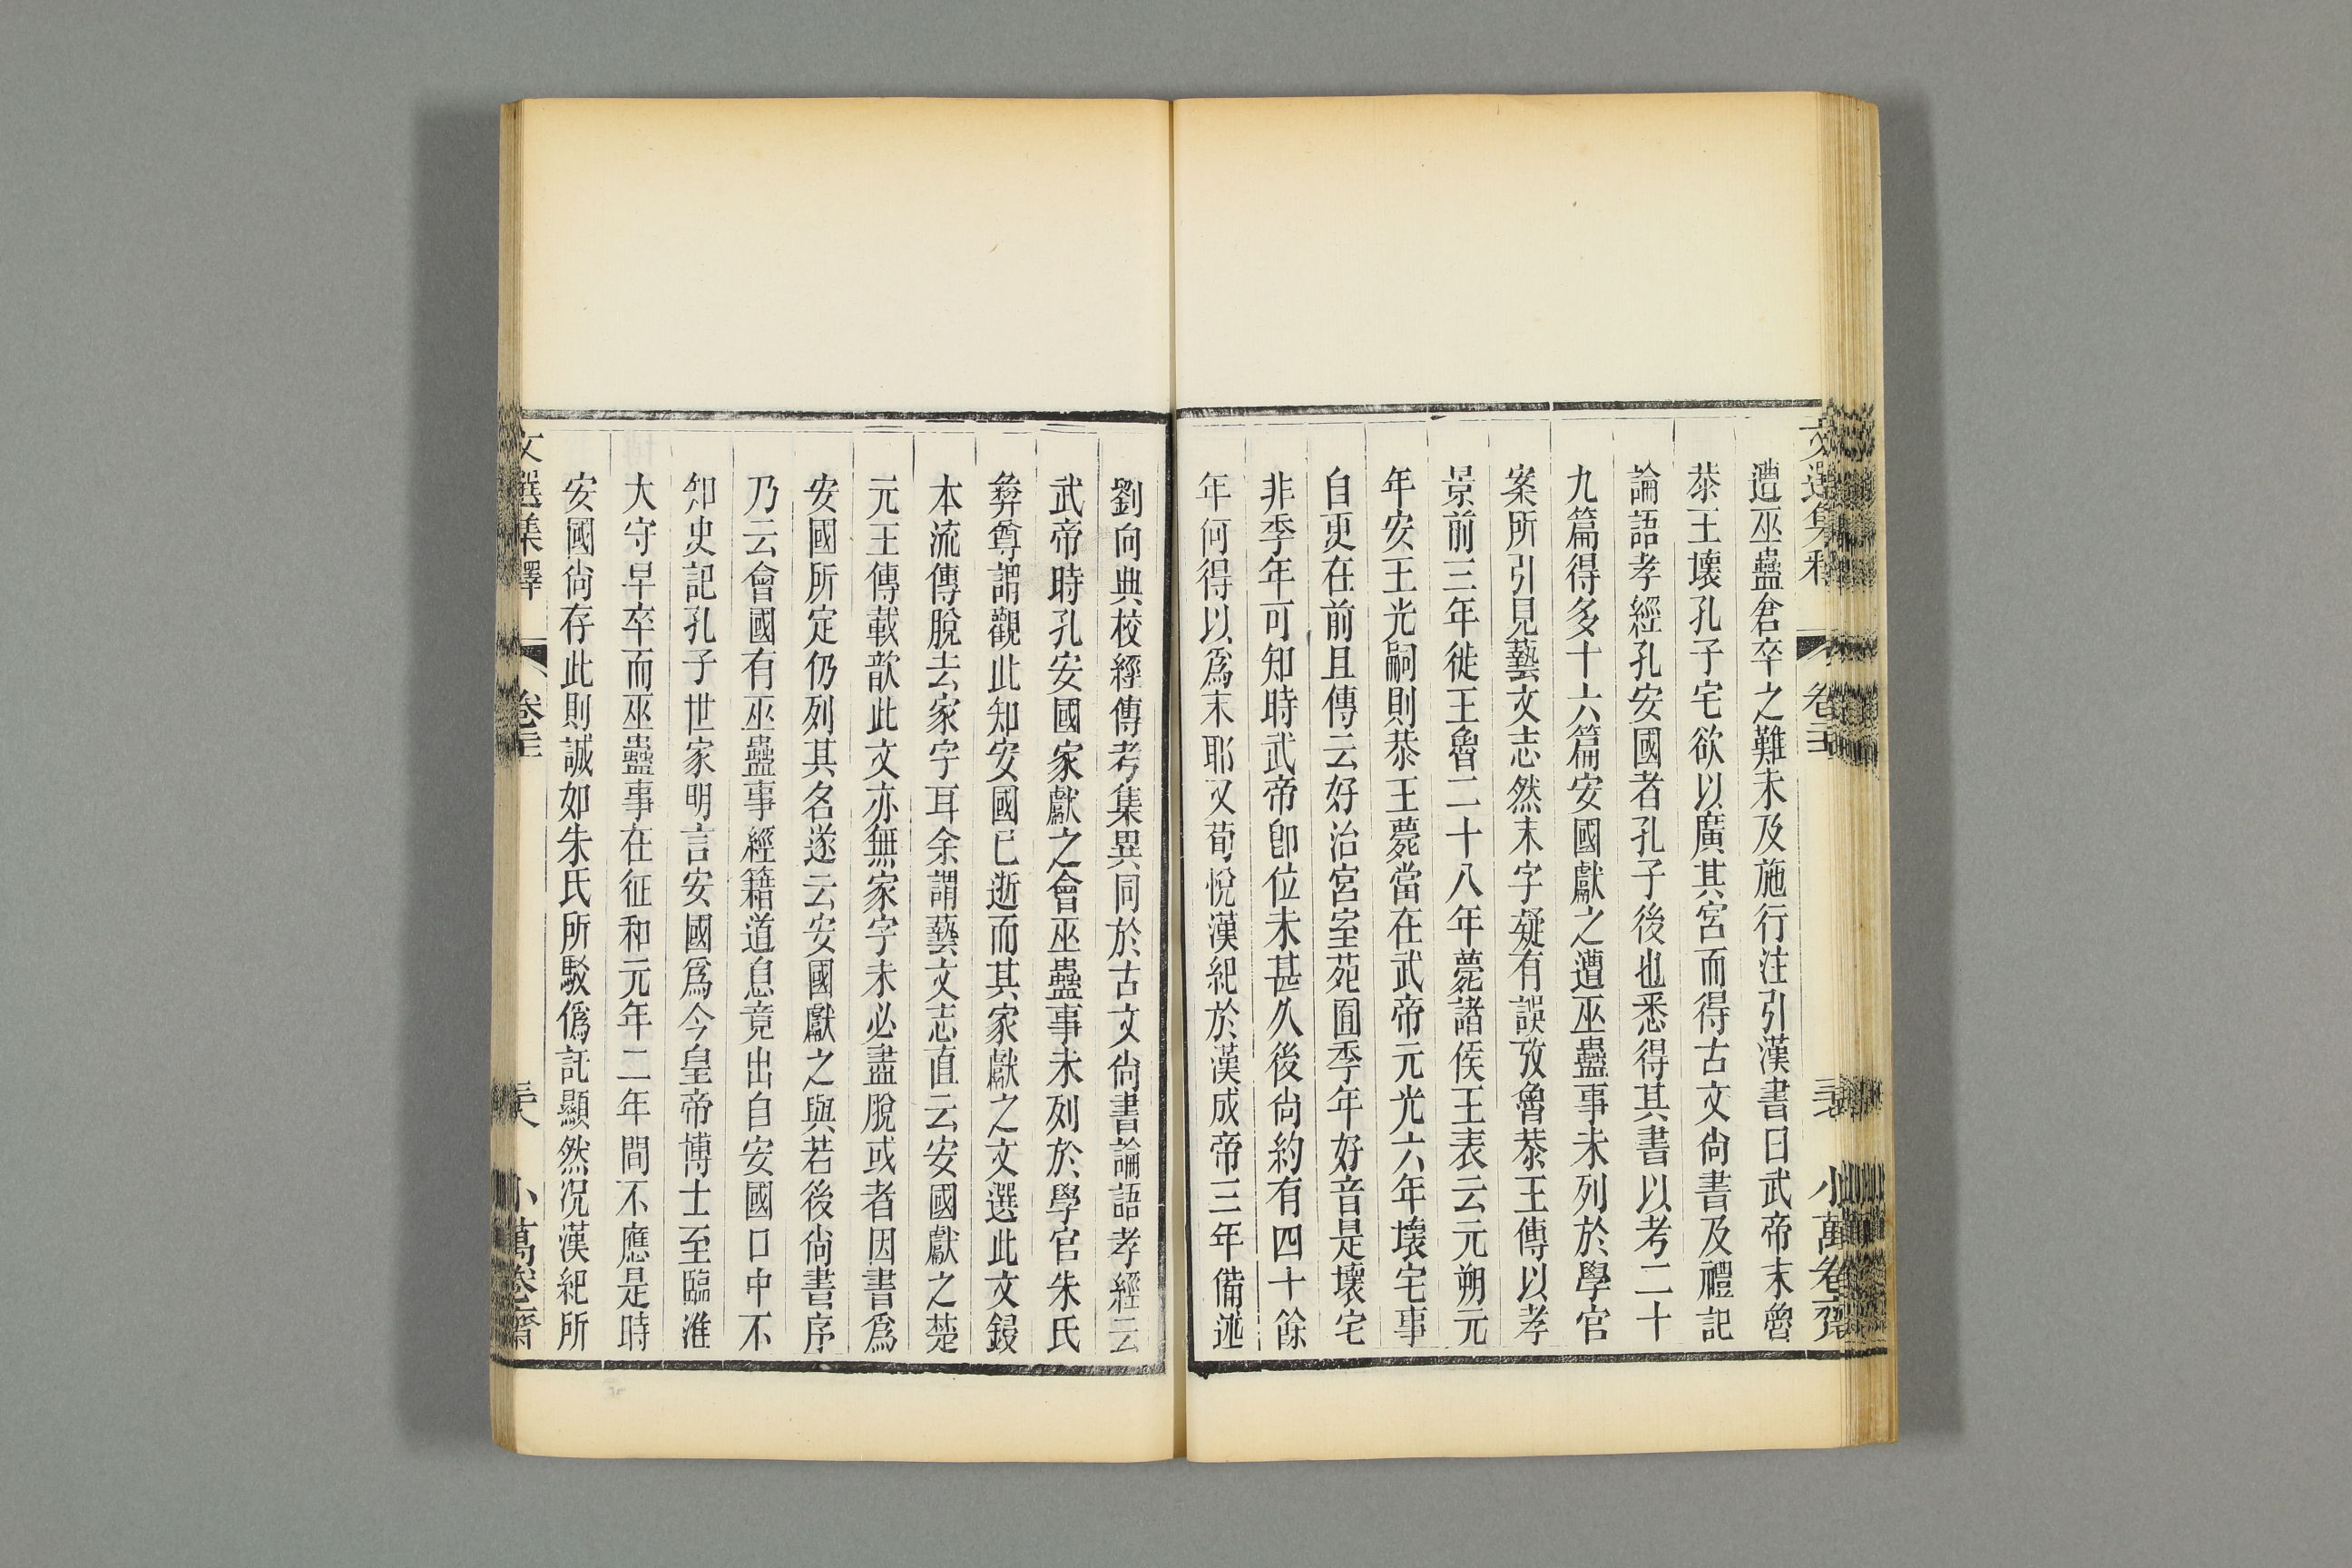 遭巫蠱倉卒之難未及施行注引漢書曰武帝末魯
恭王壞孔子宅欲以廣其宮而得古文尚書及禮記
論語孝經孔安國者孔子後也悉得其書以考二十
九篇得多十六篇安國獻之遭巫蠱事未列於學官
案所引見藝文志然末字疑有誤攷魯恭王傳以孝
景前三年徙王魯二十八年薨諸侯王表云元朔元
年安王光嗣則恭王薨當在武帝元光六年壞宅事
自更在前且傳云好治宮室苑囿季年好音是壞宅
非季年可知時武帝卽位未甚久後尚約有四十餘
年何得以爲末耶又荀悅漢紀於漢成帝三年備述
劉向典校經傳考集異同於古文尚書論語孝經云
武帝時孔安國家獻之會巫蠱事未列於學官朱氏
彝尊謂觀此知安國已逝而其家獻之文選此文鋟
本流傳脫去家字耳余謂藝文志直云安國獻之楚
元王傳載歆此文亦無家字未必盡脫或者因書爲
安國所定仍列其名遂云安國獻之與若後尚書序
乃云會國有巫蠱事經籍道息竟出自安國口中不
知史記孔子世家明言安國爲今皇帝博士至臨淮
大守早卒而巫蠱事在征和元年二年間不應是時
安國尚存此則誠如朱氏所駁僞託顯然況漢紀所
文選集釋
小萬卷齋